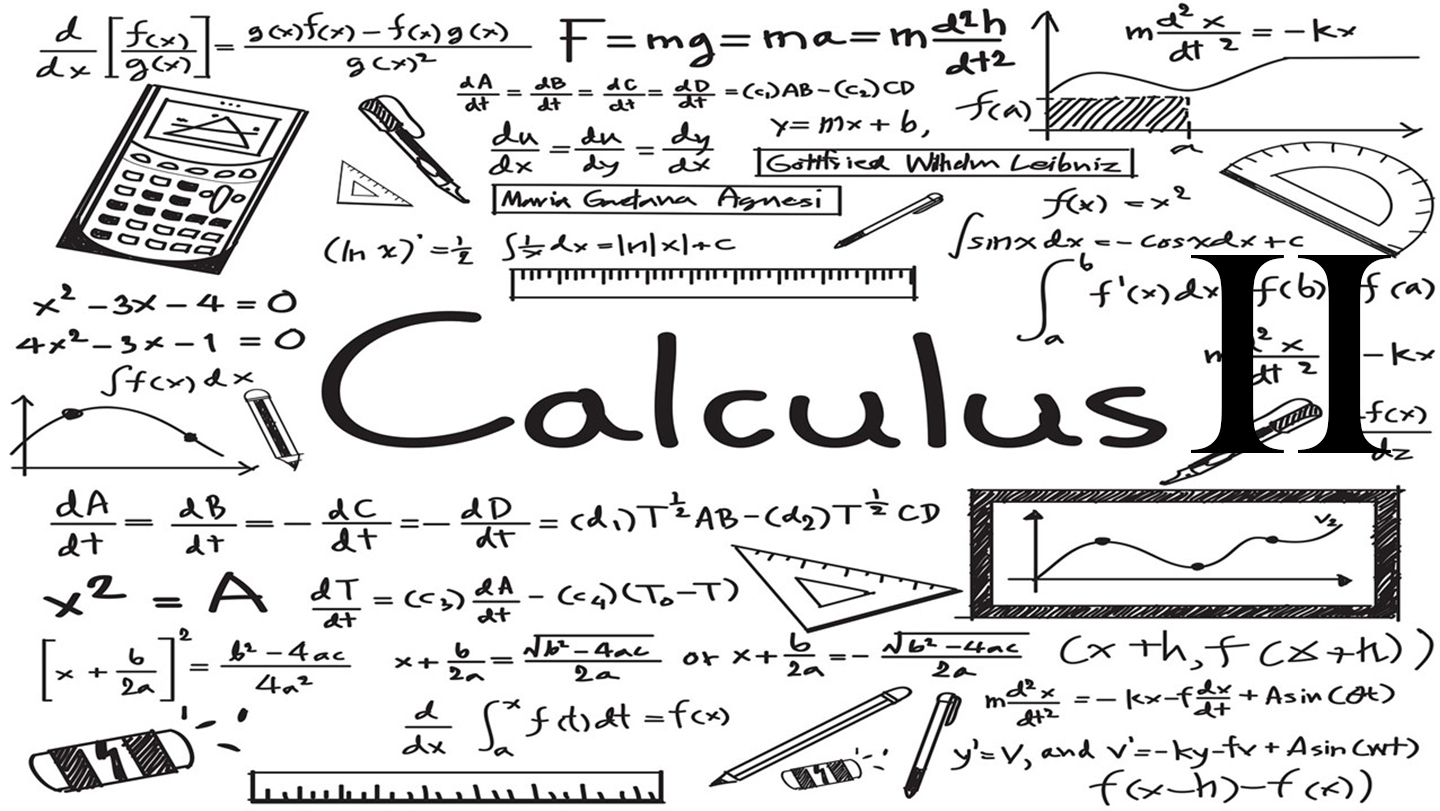 d/dx [f(x)/g(x)] = g(x)f(x) – f(x)g(x) / g(x)²
F = mg = ma = m d²h/dt²
m d²x/dt² = –kx
dA/dt = dB/dt = dC/dt = dD/dt = (c₁)AB – (c₂)CD
f(a)
a
du/dx = du/dy = dy/dx
y = mx + b,
Gottfried Wilhelm Leibniz
Maria Gaetana Agnesi
f(x) = x²
(ln x)' = 1/2
∫ 1/x dx = ln|x| + c
∫ sinx dx = – cosxdx + c
x² – 3x – 4 = 0
∫ₐᵇ f'(x) dx f(b) f(a)
4x² – 3x – 1 = 0
d²x/dt² – kx
∫f(x) dx
Calculus II
f(x)/dz
dA/dt = dB/dt = – dC/dt = – dD/dt = (d₁)T^½ AB – (d₂)T^½ CD
V₂
x² = A
dT/dt = (c₃) dA/dt – (c₄)(T₀ – T)
[x + b/2a]² = b² – 4ac / 4a²
x + b/2a = √b² – 4ac / 2a or x + b/2a = – √b² – 4ac / 2a
(x + h, f(x + h))
m d²x/dt² = – kx – f dx/dt + Asin(t)
d/dx ∫ₐˣ f(t)dt = f(x)
y' = V, and v' = – ky – fv + Asin(wt)
f(x – h) – f(x))